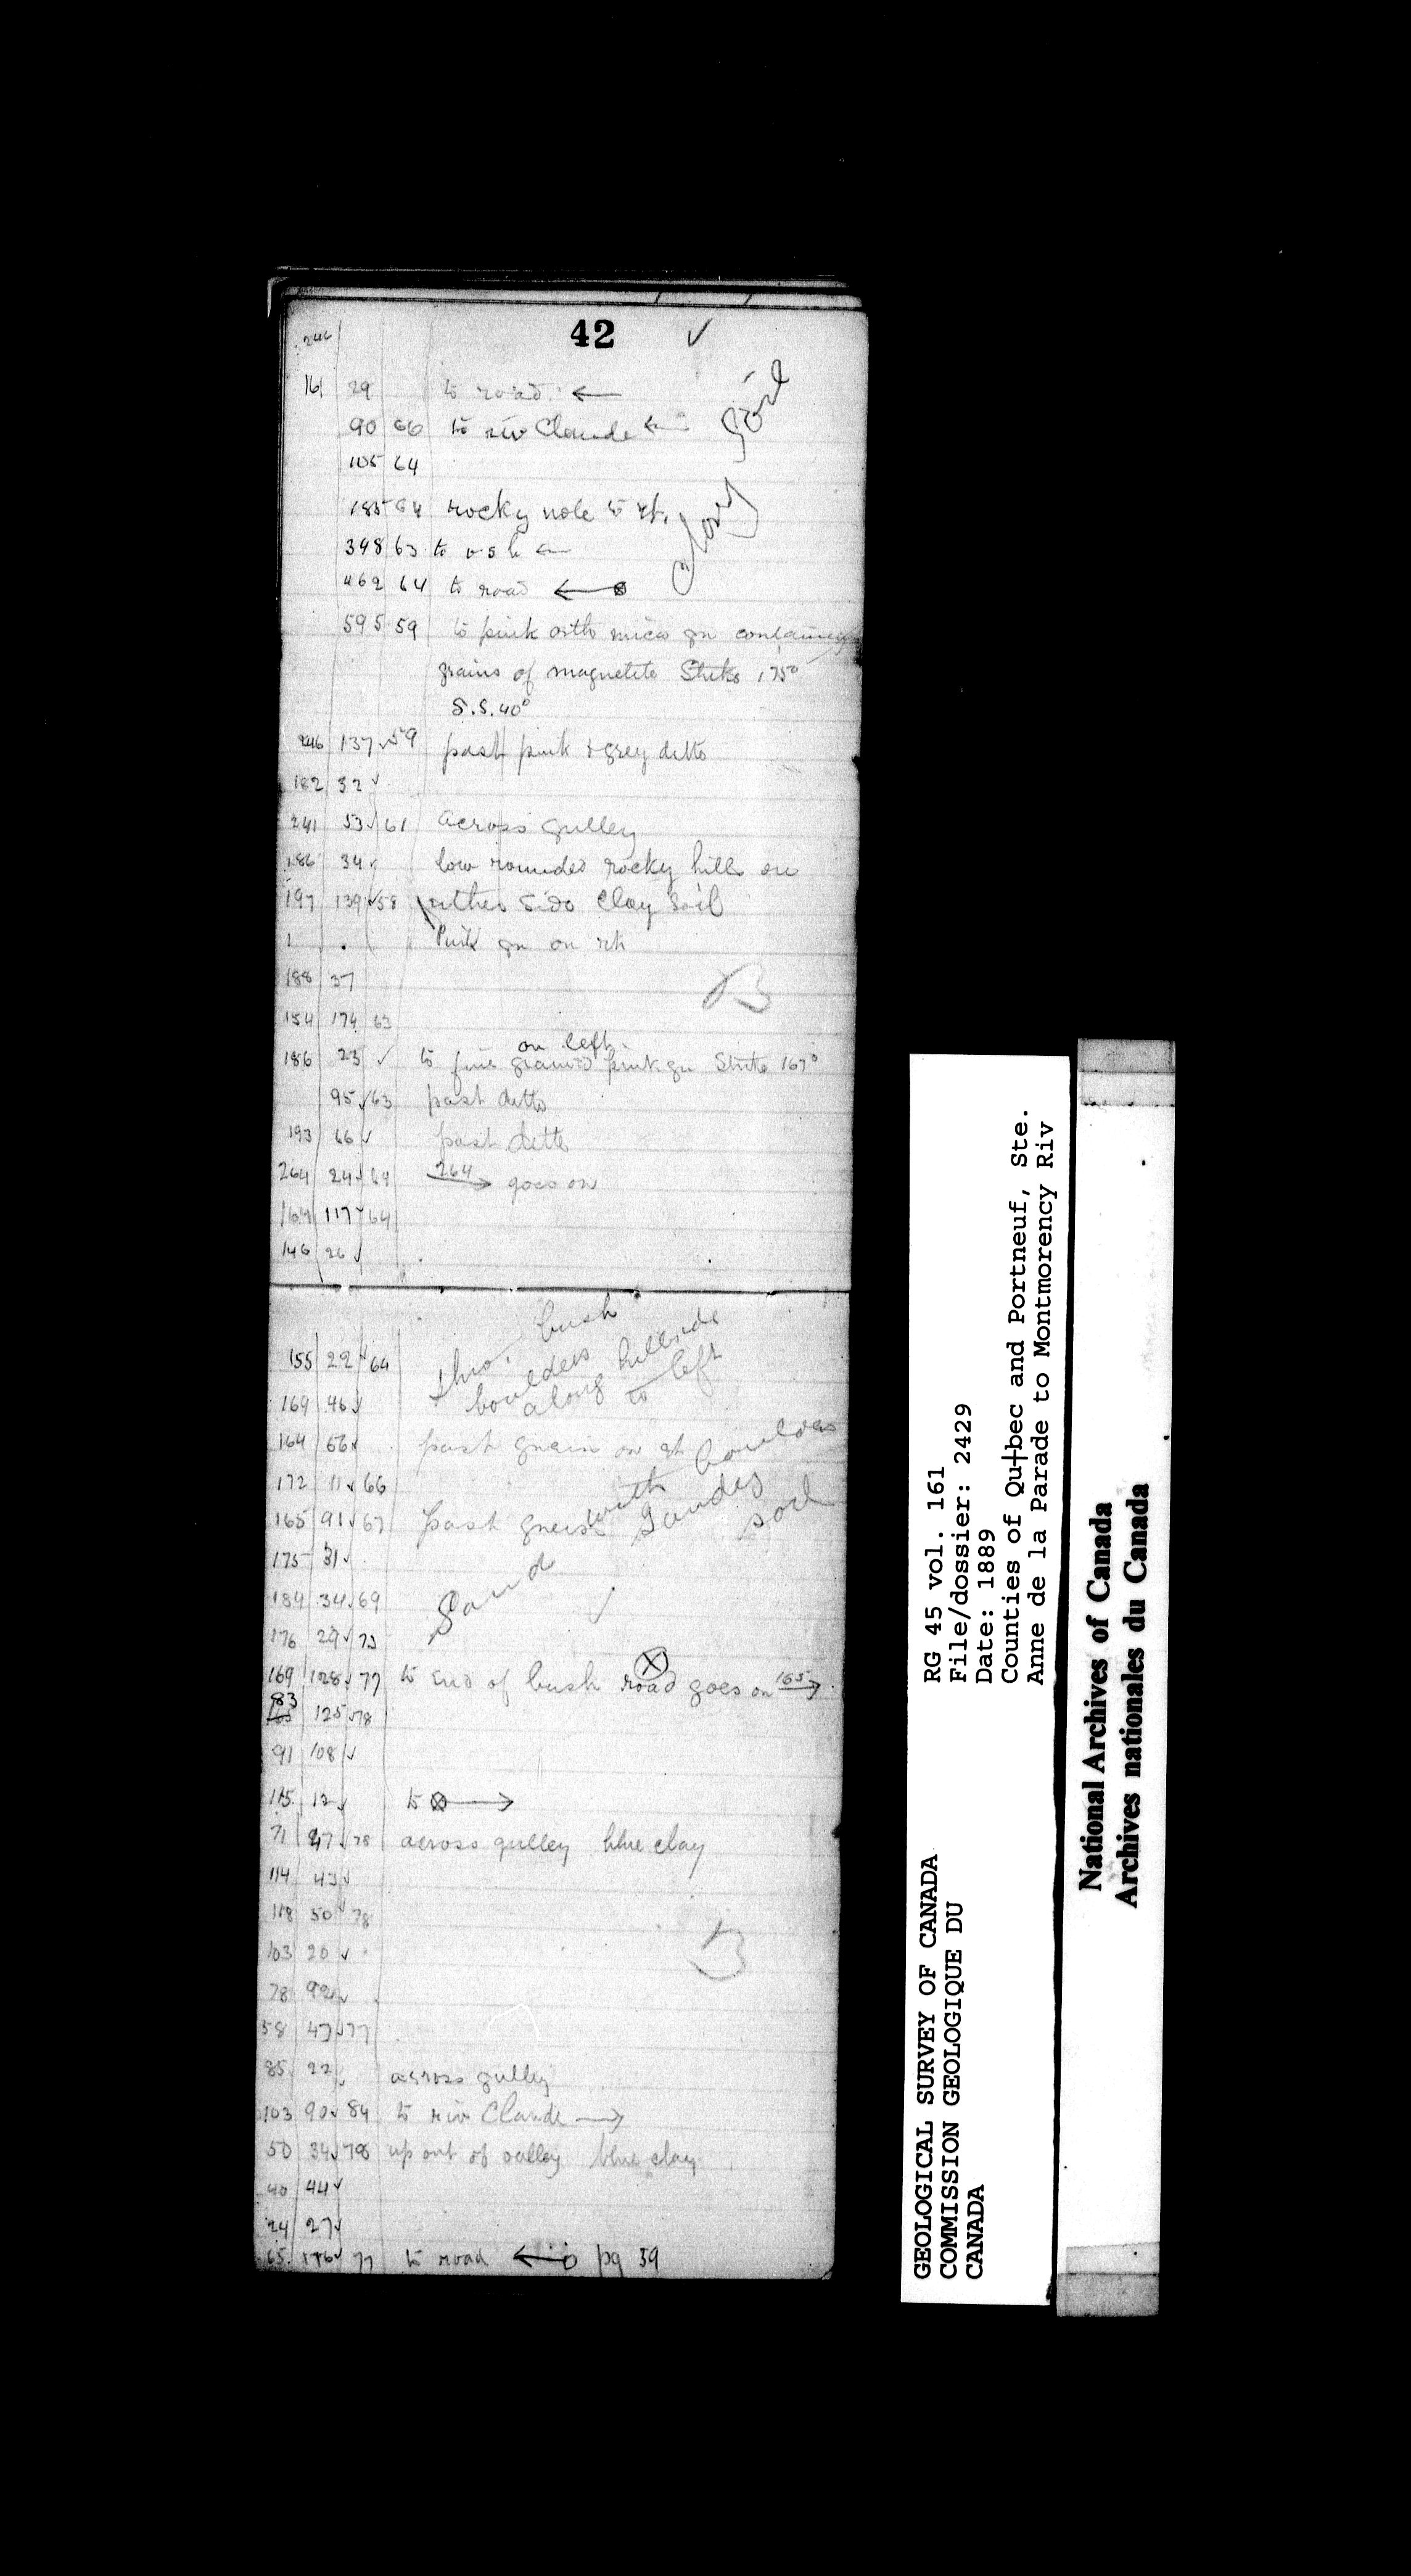 42 ✓
246
161 29 to road ←
90 66 to riv Claude ←
105 64
185 64 rocky to rt.
398 63 to ←
462 64 to road ←
Clay Soil
595 59 to pink ortho mica gn containing
grains of magnetite Strike 175°
S.S. 40°
246 137 ✓ 59 past pink & grey ditto
182 32 ✓
241 53 ✓ 61 across gulley
186 34 ✓ low rounded rocky hills on
197 139 ✓ 58 either side Clay Soil
Pink gn on rt
188 37
B
154 174 63
on left
186 23 ✓ to fine grained pink gn Strike 167°
95 ✓ 63 past ditto
193 66 ✓ past ditto
264 24 ✓ 64 264 → goes on
164 117 ✓ 64
146 26 ✓
155 22 ✓ 64 thro' bush
boulders
along hillside
to left
169 46 ✓
164 66 ✓ past gneiss on rt
172 11 ✓ 66
165 91 ✓ 67 past gneiss with boulders
Sandy soil
175 31 ✓
184 34 ✓ 69 Sand
176 29 ✓ 73
169 128 ✓ 77 to end of bush road goes on 165 →
83 125 ✓ 78
91 108 ✓
115 12 ✓ to ⊗→
71 47 ✓ 78 across gulley blue clay
114 43 ✓
118 50 ✓ 78
B
103 20 ✓
78 92 ✓
58 47 ✓ 77
85 22 ✓ across gulley
103 90 ✓ 84 to riv Claude →
50 34 ✓ 78 up out of valley blue clay
40 44 ✓
24 27 ✓
65 176 ✓ 77 to road ← pg 39
GEOLOGICAL SURVEY OF CANADA
COMMISSION GEOLOGIQUE DU
CANADA
RG 45 vol. 161
File/dossier: 2429
Date: 1889
Counties of Qu†bec and Portneuf, Ste.
Anne de la Parade to Montmorency Riv
National Archives of Canada
Archives nationales du Canada